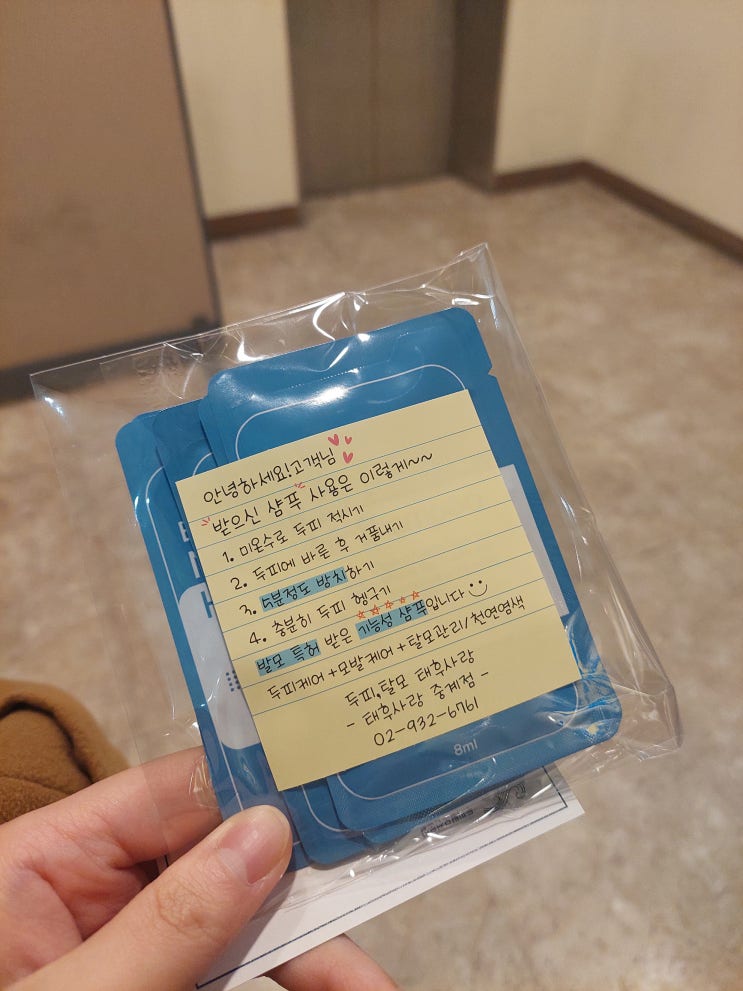 안녕하세요!고객님
받으신 샴푸 사용은 이렇게~~
1. 미온수로 두피 적시기
2. 두피에 바른 후 거품내기
3. 5분정도 방치하기
4. 충분히 두피 헹구기
발모 특허 받은 기능성 샴푸입니다
두피케어+모발케어+탈모관리/천연염색
두피,탈모 태후사랑
- 태후사랑 중계점 -
02-932-6761
8ml